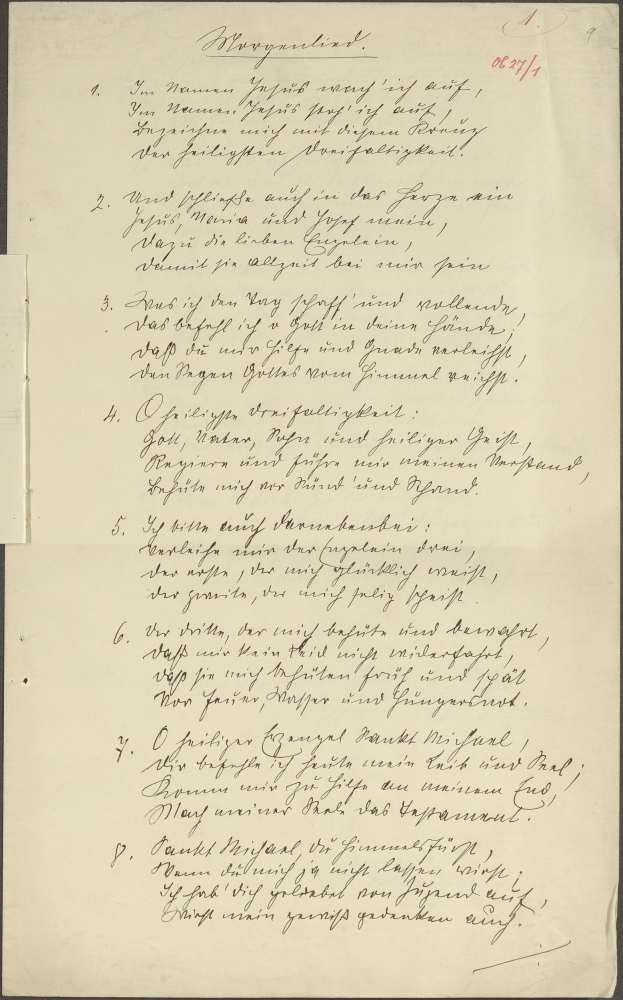 1.
9
Morgenlied.
Ob 27/1
1. Im Namen Jesus wach' ich auf,
Im Namen Jesus steh' ich auf,
Bezeichne mich mit diesem Kreuz
Der heiligsten Dreifaltigkeit.
2. Und schließe auch in das Herze ein
Jesus, Maria und Josef mein,
Dazu die lieben Engelein,
Damit sie allzeit bei mir sein
3. Was ich den Tag schaff' und vollende,
Das befehl ich o Gott in deine Hände;
Daß du mir Hilfe und Gnade verleihst,
Den Segen Gottes vom Himmel reichst.
4. O heiligste Dreifaltigkeit:
Gott, Vater, Sohn und heiliger Geist,
Regiere und führe mir meinen Verstand,
Behüte mich vor Sünd' und Schand.
5. Ich bitte auch darnebenbei:
Verleihe mir der Engelein drei,
Der erste, der mich glücklich weist,
Der zweite, der mich selig speist.
6. Der dritte, der mich behüte und bewahrt,
Daß mir kein Leid nicht widerfahrt,
Daß sie mich behüten früh und spät
Vor Feuer, Wasser und Hungersnot.
7. O heiliger Erzengel Sankt Michael,
Dir befehle ich heute mein Leib und Seel;
Komm mir zu Hilfe an meinem End,
Mach meiner Seele das Testament.
8. Sankt Michael, du Himmelsfürst,
Wenn du mich ja nicht lassen wirst;
Ich hab' dich geliebet von Jugend auf,
Wirst mein gewiß gedenken auch.